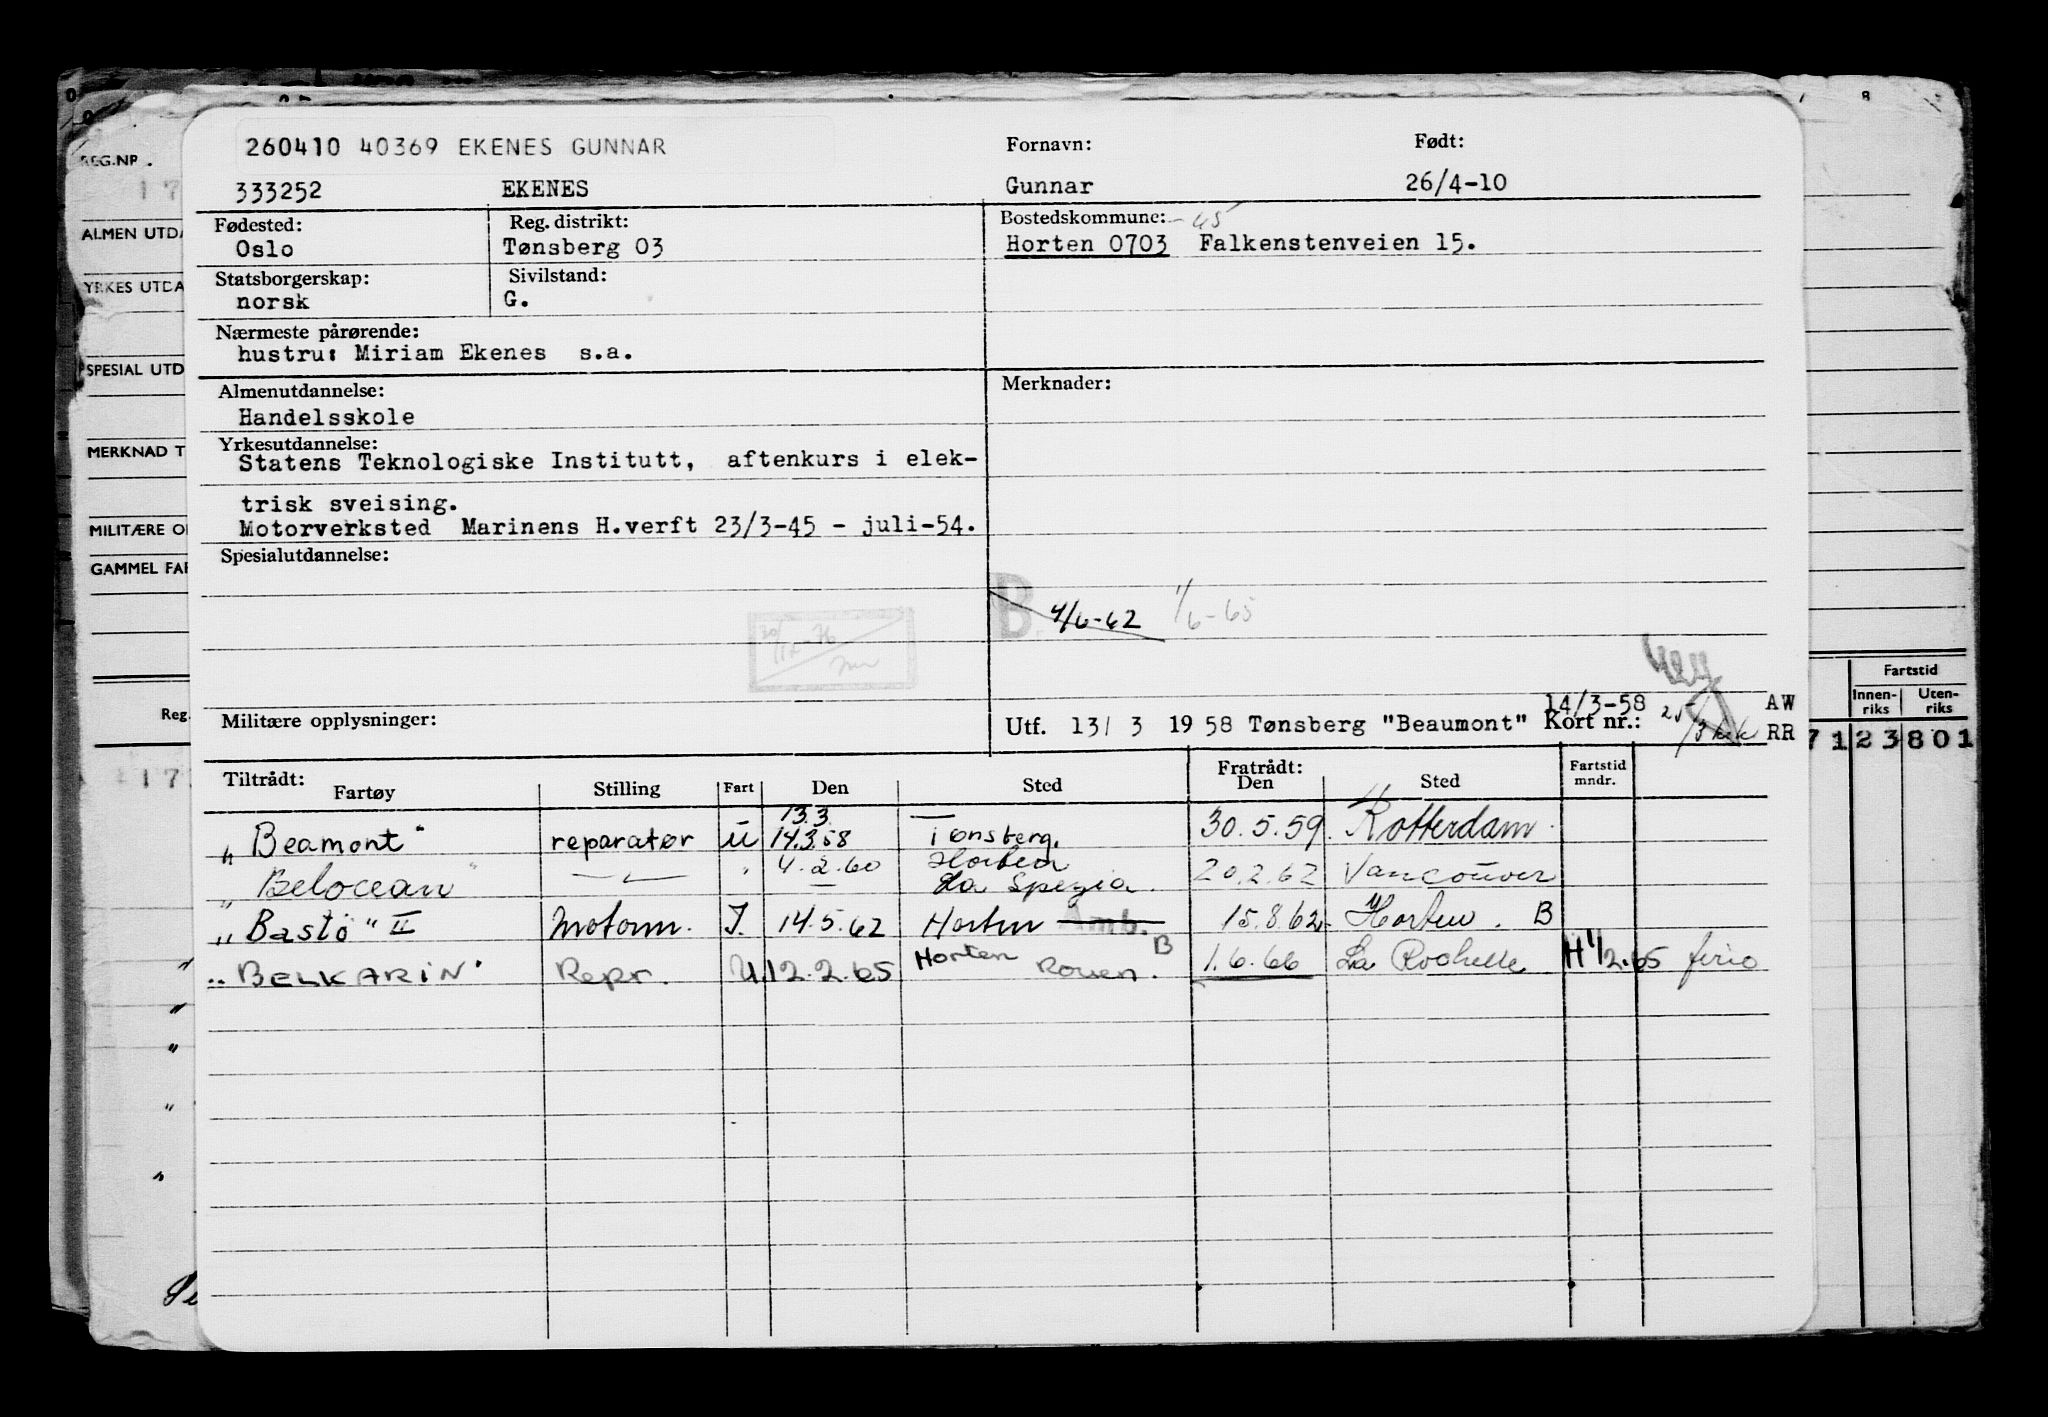 260410 40369 EKENES GUNNAR
Fornavn: Født:
333252 EKENES Gunnar 26/4-10
Fødested: Reg. distrikt: Bostedskommune: -45
Oslo Tønsberg 03 Horten 0703 Falkenstenveien 15.
Statsborgerskap: Sivilstand:
norsk G.
Nærmeste pårørende:
hustru: Miriam Ekenes s.a.
Almenutdannelse: Merknader:
Handelsskole
Yrkesutdannelse:
Statens Teknologiske Institutt, aftenkurs i elek-
trisk sveising.
Motorverksted Marinens H.verft 23/3-45 - juli-54.
Spesialutdannelse:
B 4/6-62 1/6-65
14/3-58 AW
Militære opplysninger: Utf. 13/ 3 1958 Tønsberg "Beaumont" Kort nr.: RR
Tiltrådt: Fratrådt: Fartstid
Fartøy Stilling Fart Den Sted Den Sted mndr.
13.3.
"Beamont" reparatør U 14.3.58 Tønsberg. 30.5.59. Rotterdam.
Horten
"Belocean" " 4.2.60 La Spezia. 20.2.62 Vancouver
"Bastø" II Motorm. I. 14.5.62 Horten Amb. 15.8.62 Horten. B
"BELKARIN" Repr. U. 12.2.65 Horten Rouen. B 1.6.66 La Rochelle H 1/2.65 ferie
REG.NR.
17
ALMEN UTDA
YRKES UTDA
SPESIAL UTD
MERKNAD T
MILITÆRE O
GAMMEL FAR
Reg.
17
8
Fartstid
Innen-riks Uten-riks
71 23 801